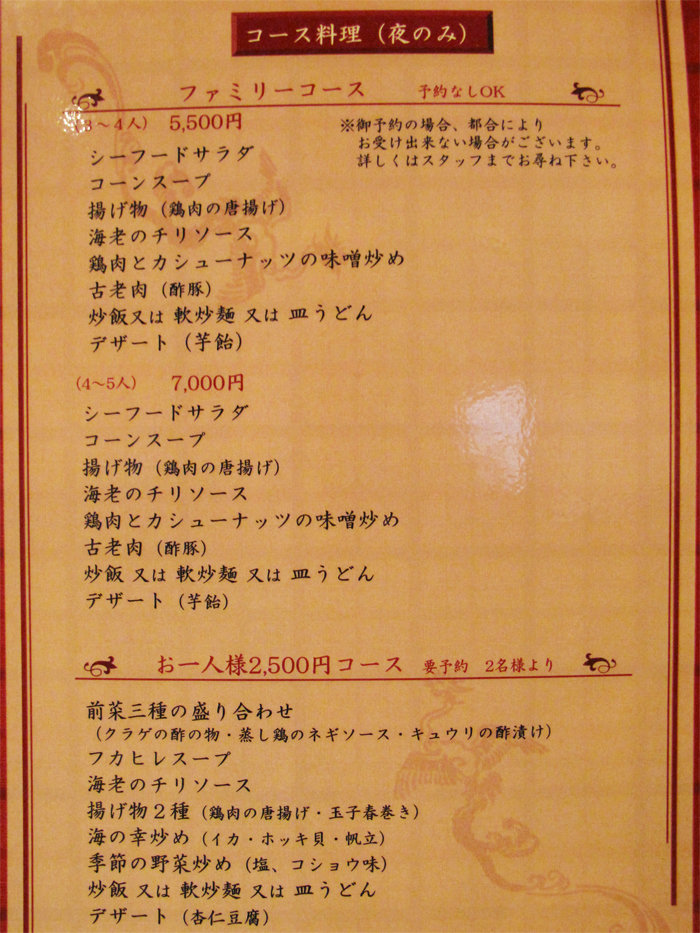 コース料理（夜のみ）
ファミリーコース　予約なしOK
（3～4人）5,500円
※御予約の場合、都合により
お受け出来ない場合がございます。
詳しくはスタッフまでお尋ね下さい。
シーフードサラダ
コーンスープ
揚げ物（鶏肉の唐揚げ）
海老のチリソース
鶏肉とカシューナッツの味噌炒め
古老肉（酢豚）
炒飯又は 軟炒麺 又は 皿うどん
デザート（芋飴）
（4～5人）7,000円
シーフードサラダ
コーンスープ
揚げ物（鶏肉の唐揚げ）
海老のチリソース
鶏肉とカシューナッツの味噌炒め
古老肉（酢豚）
炒飯 又は 軟炒麺 又は 皿うどん
デザート（芋飴）
お一人様2,500円コース　要予約　2名様より
前菜三種の盛り合わせ
（クラゲの酢の物・蒸し鶏のネギソース・キュウリの酢漬け）
フカヒレスープ
海老のチリソース
揚げ物２種（鶏肉の唐揚げ・玉子春巻き）
海の幸炒め（イカ・ホッキ貝・帆立）
季節の野菜炒め（塩、コショウ味）
炒飯 又は 軟炒麺 又は 皿うどん
デザート（杏仁豆腐）